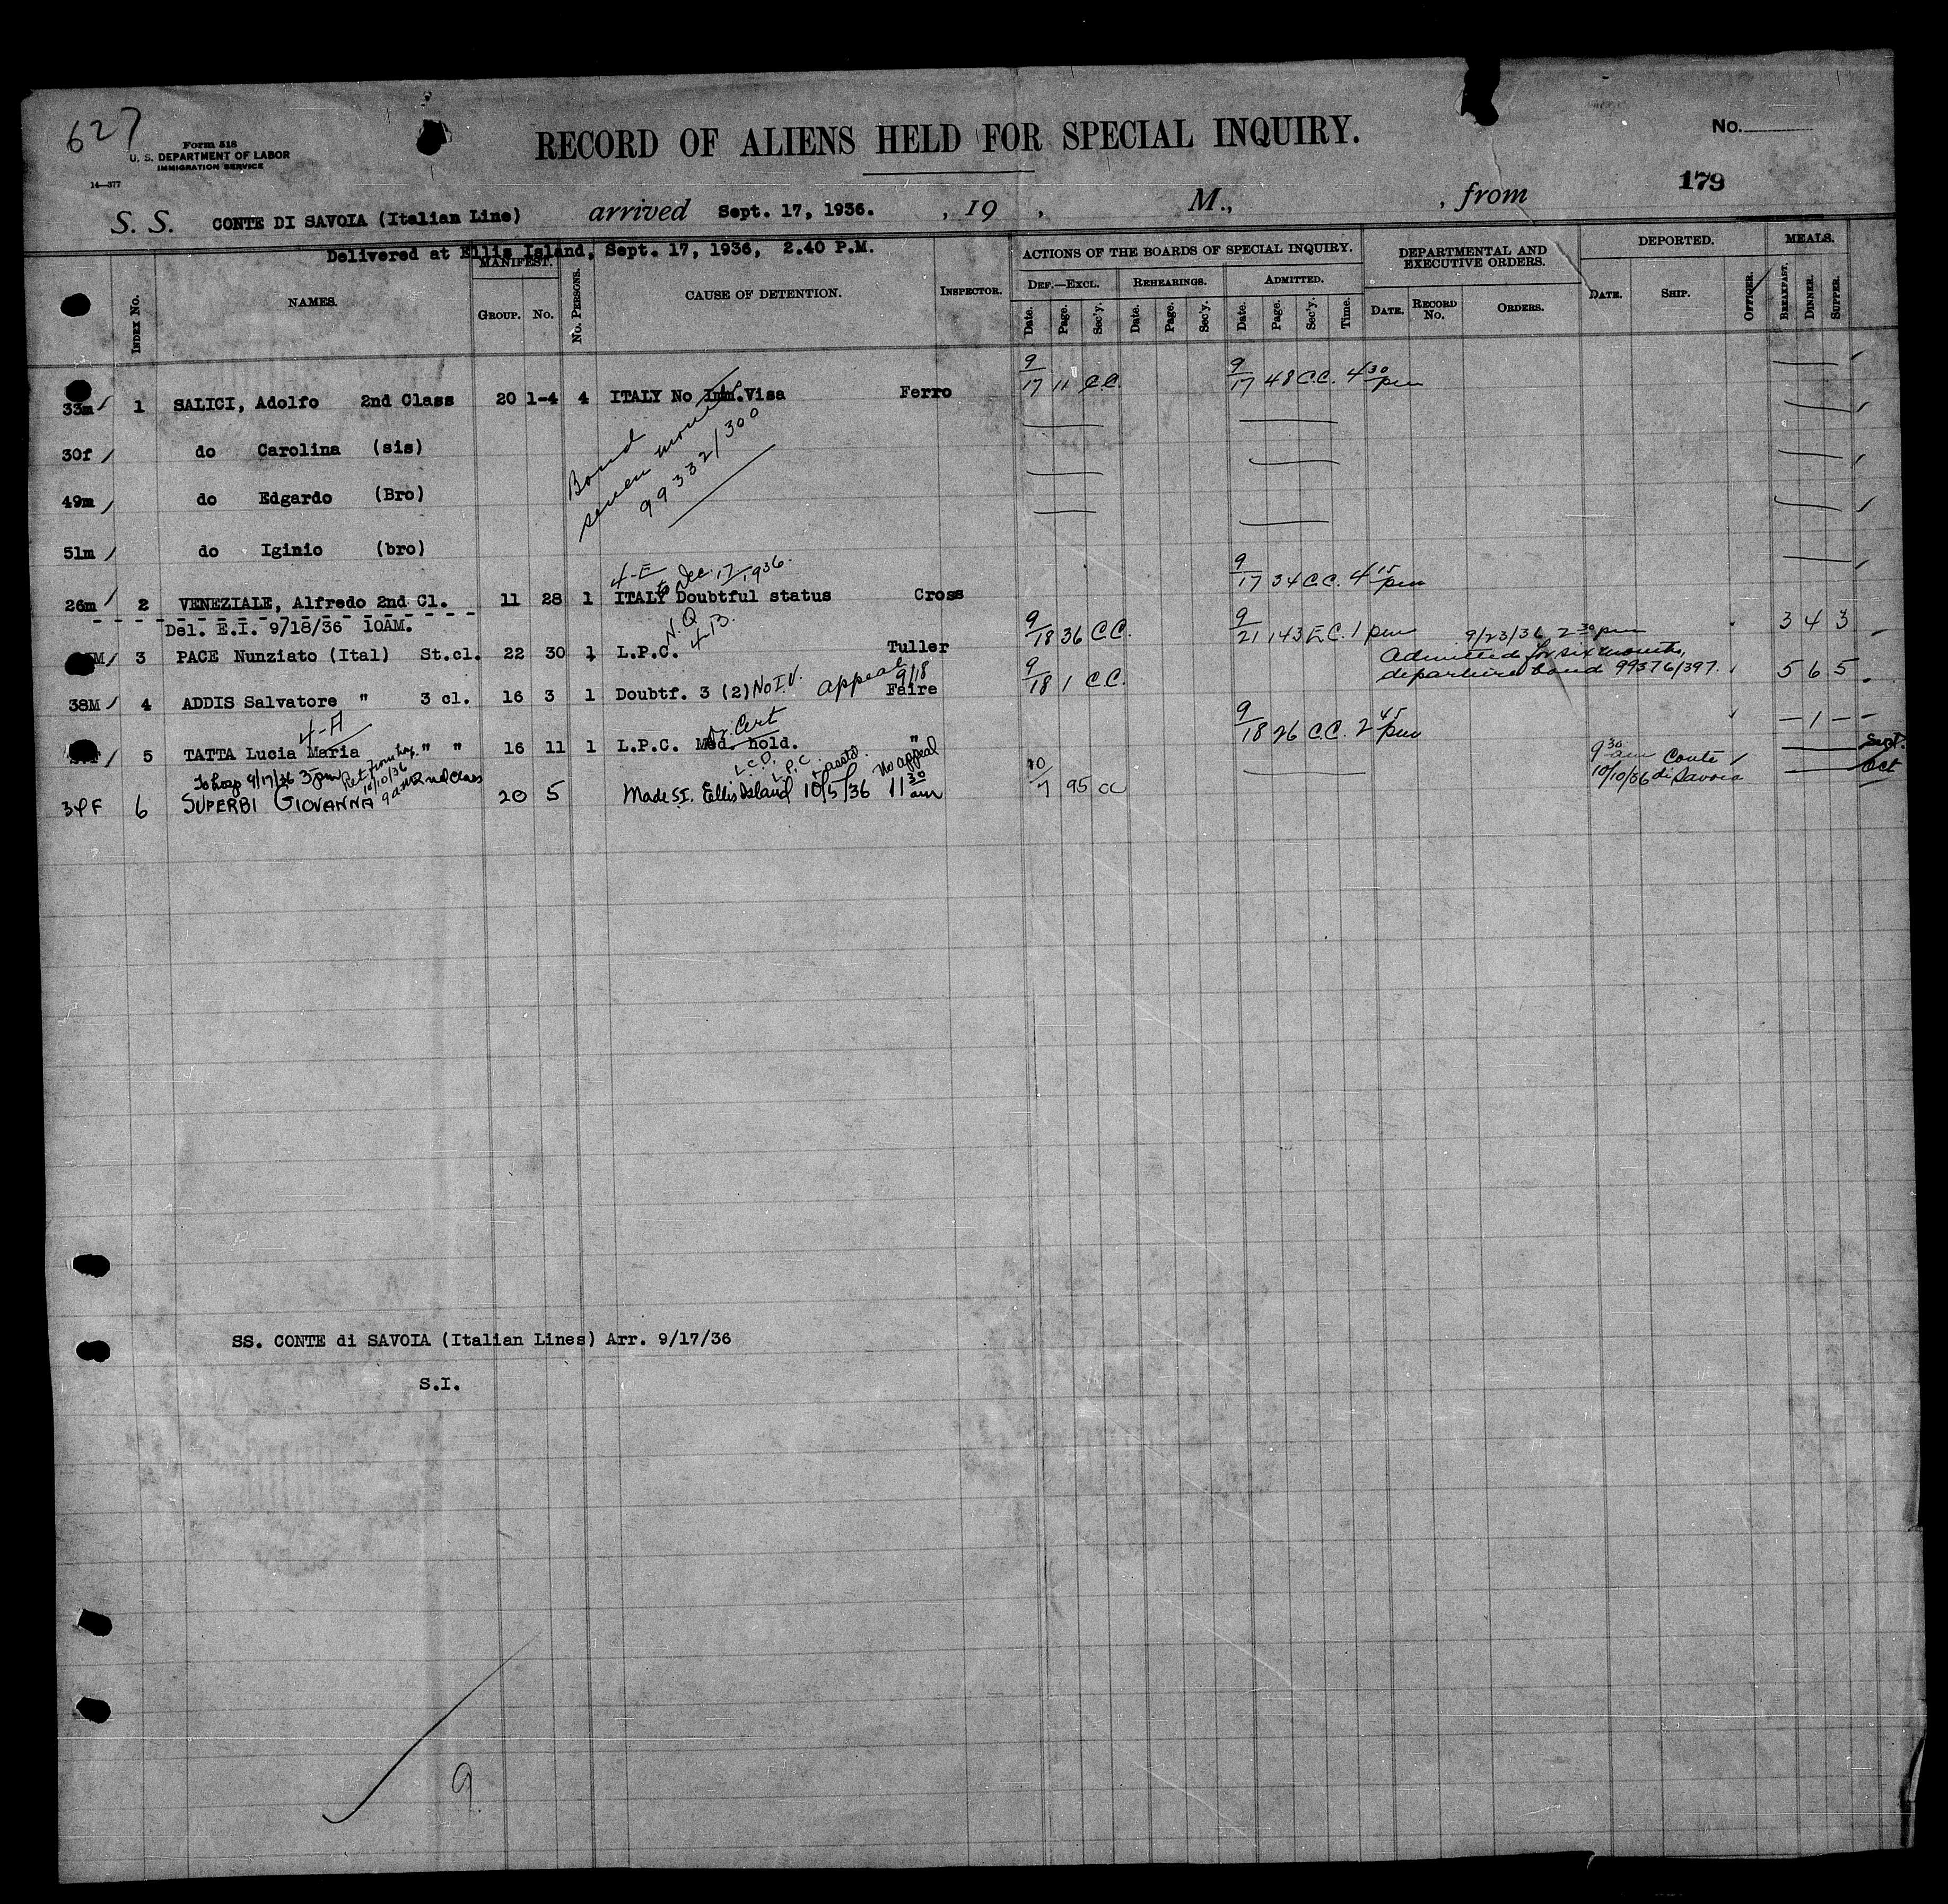 627
Form 518
U. S. DEPARTMENT OF LABOR
IMMIGRATION SERVICE
14—377
RECORD OF ALIENS HELD FOR SPECIAL INQUIRY.
No.
179
S. S. CONTE DI SAVOIA (Italian Line) arrived Sept. 17, 1936. , 19 , M., , from
Delivered at Ellis Island, Sept. 17, 1936, 2.40 P.M.
INDEX No. NAMES. MANIFEST. GROUP. No. No. PERSONS. CAUSE OF DETENTION. INSPECTOR.
ACTIONS OF THE BOARDS OF SPECIAL INQUIRY. DEF.—EXCL. Date. Page. Sec'y. REHEARINGS. Date. Page. Sec'y. ADMITTED. Date. Page. Sec'y. Time.
DEPARTMENTAL AND EXECUTIVE ORDERS. DATE. RECORD No. ORDERS.
DEPORTED. DATE. SHIP. OFFICER. MEALS. BREAKFAST. DINNER. SUPPER.
33m 1 SALICI, Adolfo 2nd Class 20 1-4 4 ITALY No Imm.Visa Ferro 9/17 11 C.C. 9/17 48 C.C. 4 30 pm
Bond
seven months
99332/300
30f do Carolina (sis)
49m do Edgardo (Bro)
51m do Iginio (bro)
4-E to Dec. 17, 1936.
26m 2 VENEZIALE, Alfredo 2nd Cl. 11 28 1 ITALY Doubtful status Cross 9/17 34 C.C. 4 15 pm
Del. E.I. 9/18/36 10AM.
N.Q.
4-B.
M 3 PACE Nunziato (Ital) St.cl. 22 30 1 L.P.C. Tuller 9/18 36 C.C. 9/21 143 E.C. 1 pm 3 4 3
9/23/36 2 30 pm
Admitted for six months,
departure bond 99376/397.
38M 4 ADDIS Salvatore " 3 cl. 16 3 1 Doubtf. 3 (2) No I.V. appeal 9/18 Faire 9/18 1 C.C. 5 6 5
4-A
Dr. Cert
5 TATTA Lucia Maria " " 16 11 1 L.P.C. Med. hold. " 9/18 26 C.C. 2 45 pm — 1 —
To hosp 9/17/36 3 pm Ret from hosp. 10/10/36 9 am 2nd Class
L.C.D. L.P.C. No appeal
34F 6 SUPERBI GIOVANNA 20 5 Made S.I. Ellis Island 10/5/36 11 30 am 10/7 95 CC
9 30 am Conte
10/10/36 di Savoia
Sept.
Oct
SS. CONTE di SAVOIA (Italian Lines) Arr. 9/17/36
S.I.
9